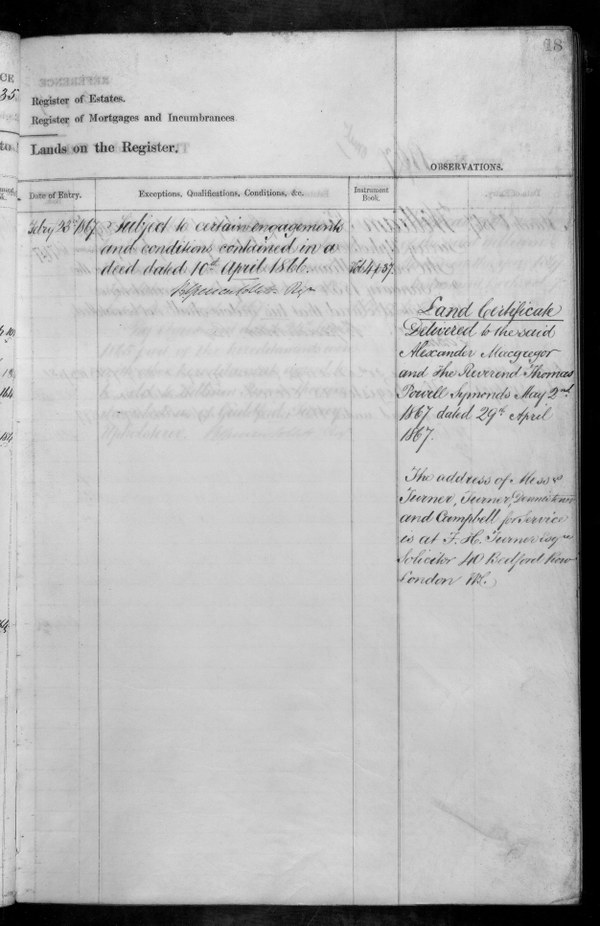 18
Register of Estates.
Register of Mortgages and Incumbrances
Lands on the Register.
OBSERVATIONS.
Date of Entry.
Exceptions, Qualifications, Conditions, &c.
Instrument Book.
Febry 23rd 1867
Subject to certain engagements
and conditions contained in a
deed dated 10th April 1866.
Land Certificate
Delivered to the said
Alexander Macgregor
and The Reverend Thomas
Powell Symonds May 2nd
1867 dated 29th April
1867.
The address of Messrs
Turner, Turner, Dennistoun
and Campbell for Service
is at F. H. Turner Esqre
Solicitor 40 Bedford Row
London WC.